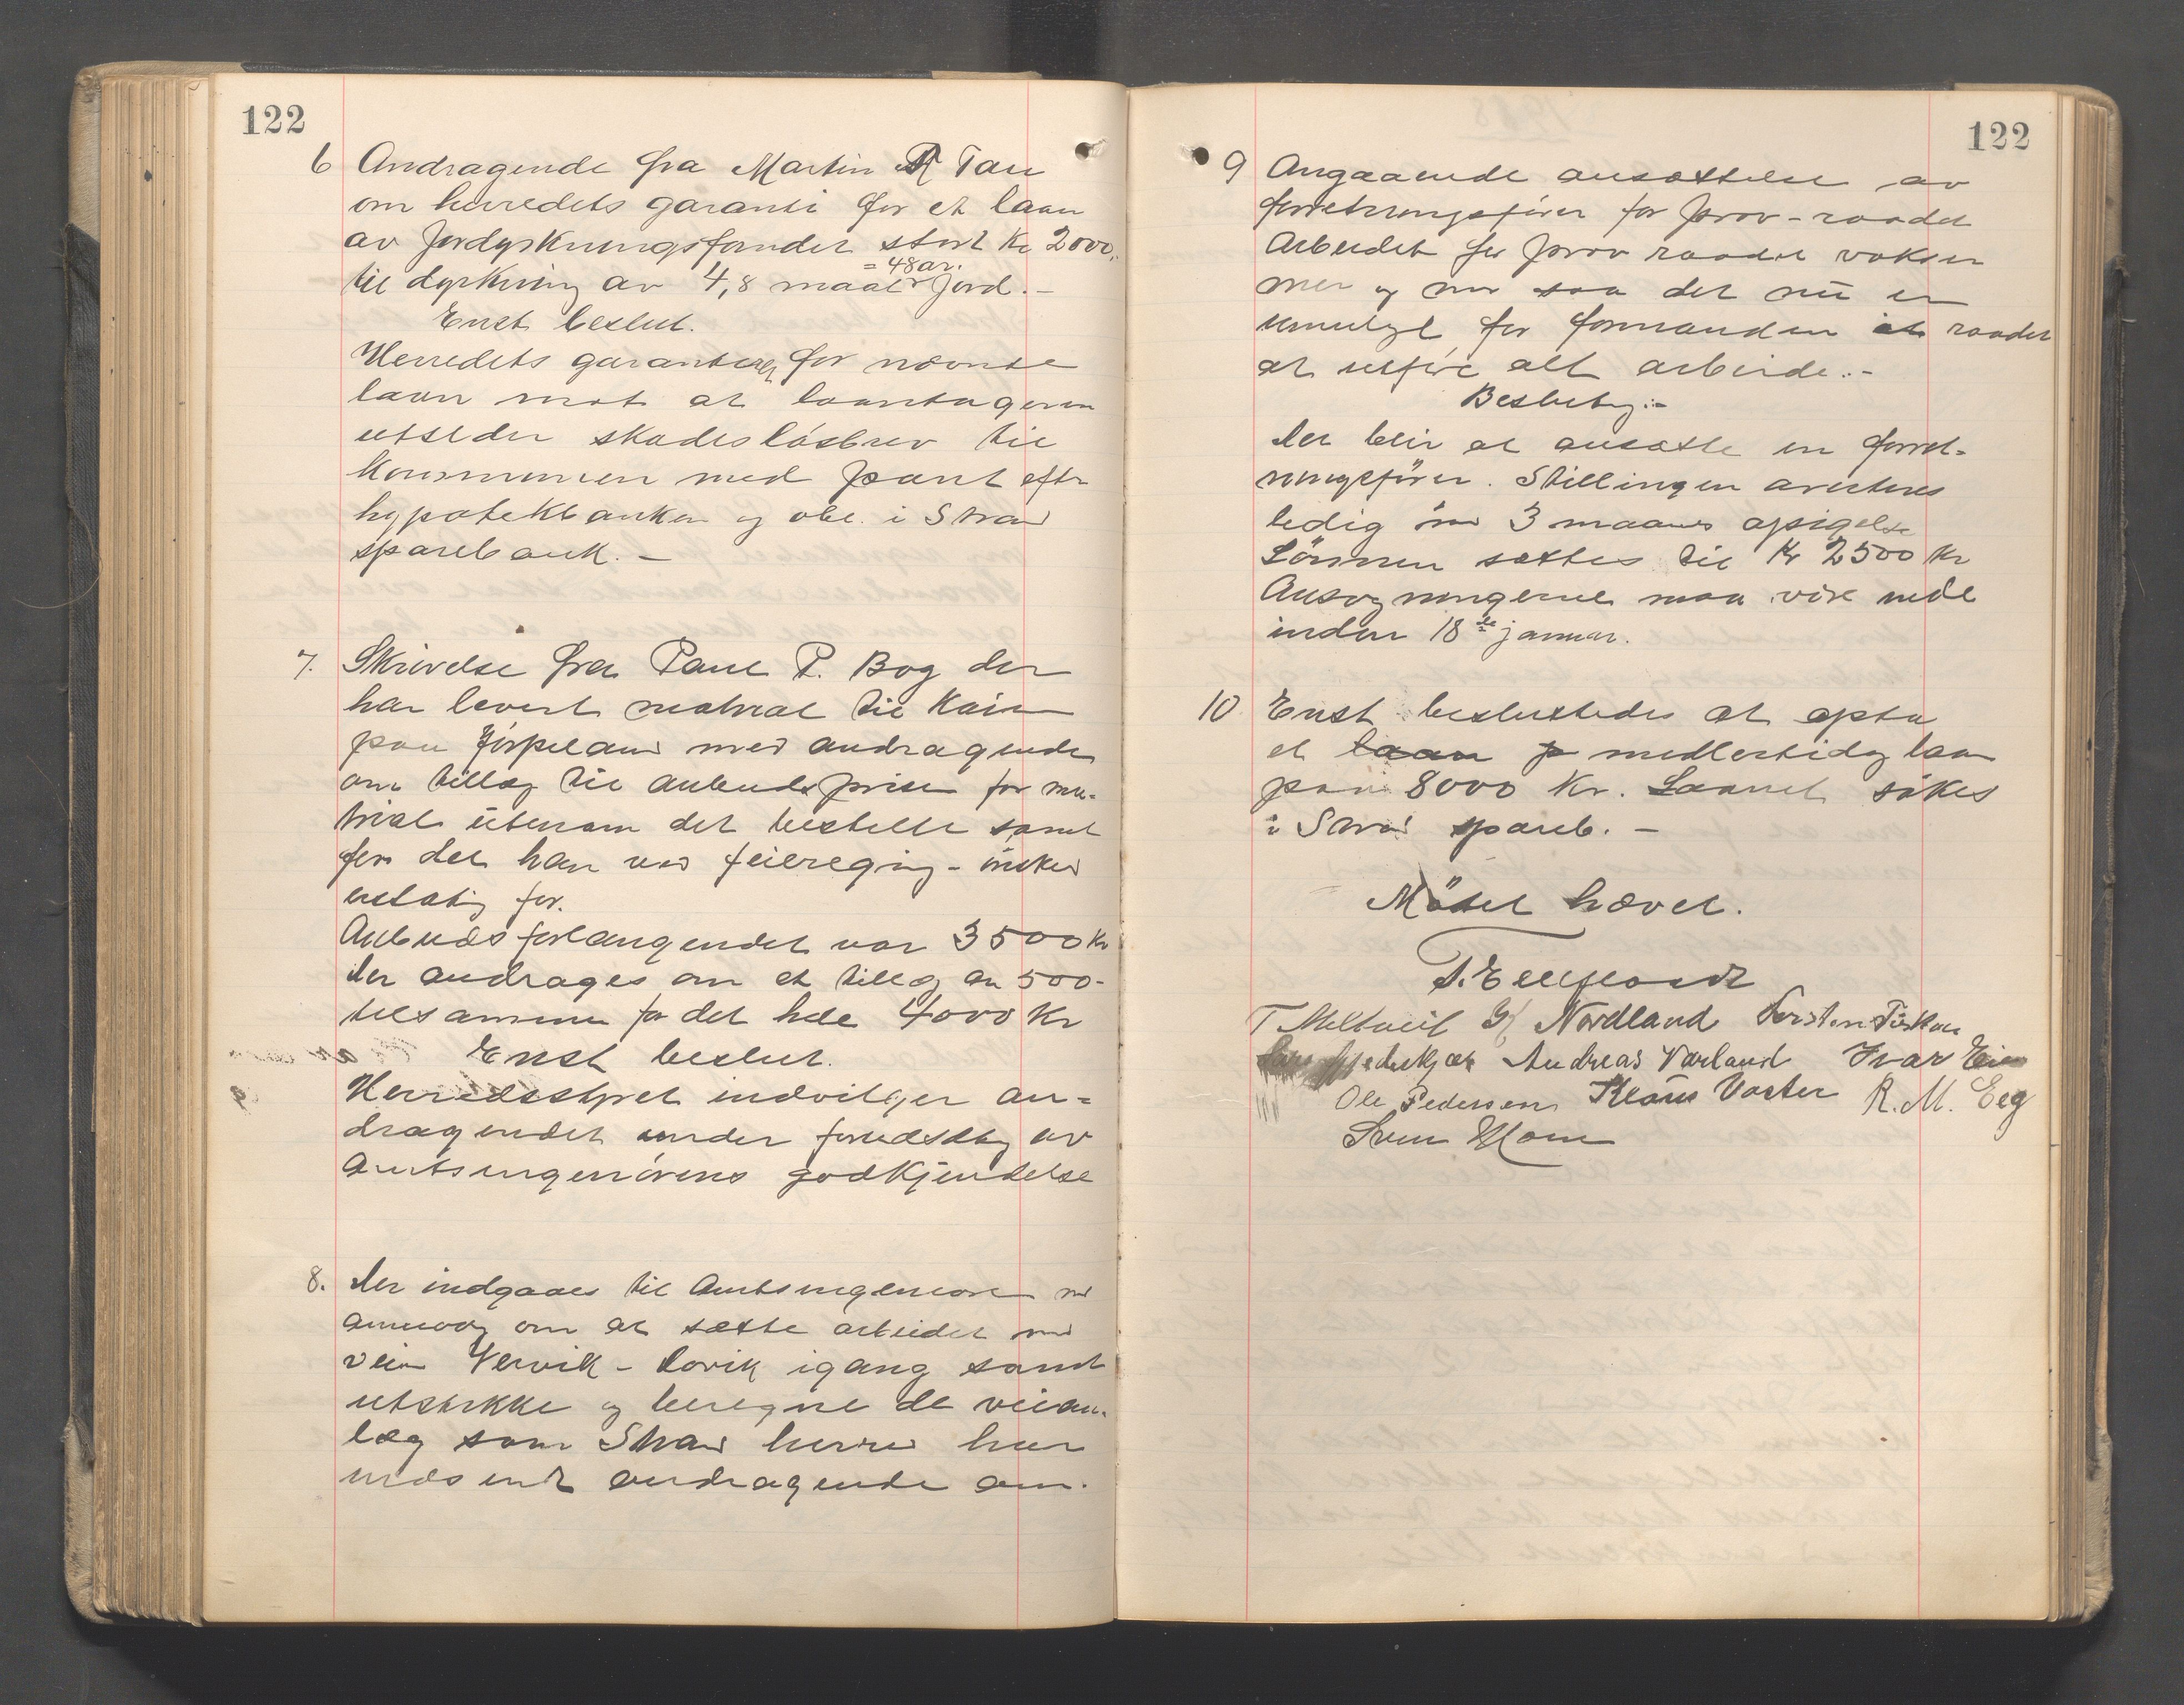 122
6 Andragende fra Martin R Tau
om herredets garanti for et laan
av Jordyrkningsfondet stort Kr 2000.
= 48 ar.
til dyrkning av 4,8 maal Jord. -
Enst beslut.
Herredets garanterer for nævnte
laan mot at laantageren
utsteder skadesløsbrev til
Kommunen med pant efter
hypotekbanken og obl. i Strand
sparebank. -
7. Skrivelse fra Paul P. Bog der
har levert matrial til Kaien
paa Jørpeland med andragende
om tillæg til anbudsprisen for ma-
trial utenom det bestelte samt
for det han ved feilregning - ønsker
erstatning for.
Anbudsforlangendet var 3500 Kr
der andrages om et tillæg av 500-
tilsammen for det hele 4000 Kr
Enst beslut.
Herredsstyret indvilger an=
dragendet under forudsætning av
Amtsingeniørens godkjendelse
8. Der indgaaes til Amtsingeniøren med
anmodning om at sætte arbeidet med
veien Vervik - Lovik igang samt
utstikke og beregne de veian-
læg som Strand herred har
indsendt andragende om.
122
9 Angaaende ansættelse av
forretningsfører for prov-raadet
Arbeidet for prov raadet vokser
mer og mer saa det nu er
umulig for formanden i raadet
at utføre alt arbeide.-
Beslutning:-
Der blir at ansætte en forret-
ningsfører. Stillingen averteres
ledig med 3 maaneds opsigelse
Lønnen sættes til Kr 2500 Kr
Ansøgningerne maa være inde
inden 18de januar.
10 Enst besluttedes at opta
et laan p medlertidig laan
paa 8000 Kr. Laanet søkes
i Strand spareb. -
Mødet hævet.
T. Meltveit Nordland Torsten Fiskaa
Andreas Varland Ivar Eie
Ole Pedersen Klaus Voster R. M. Eeg
Sven